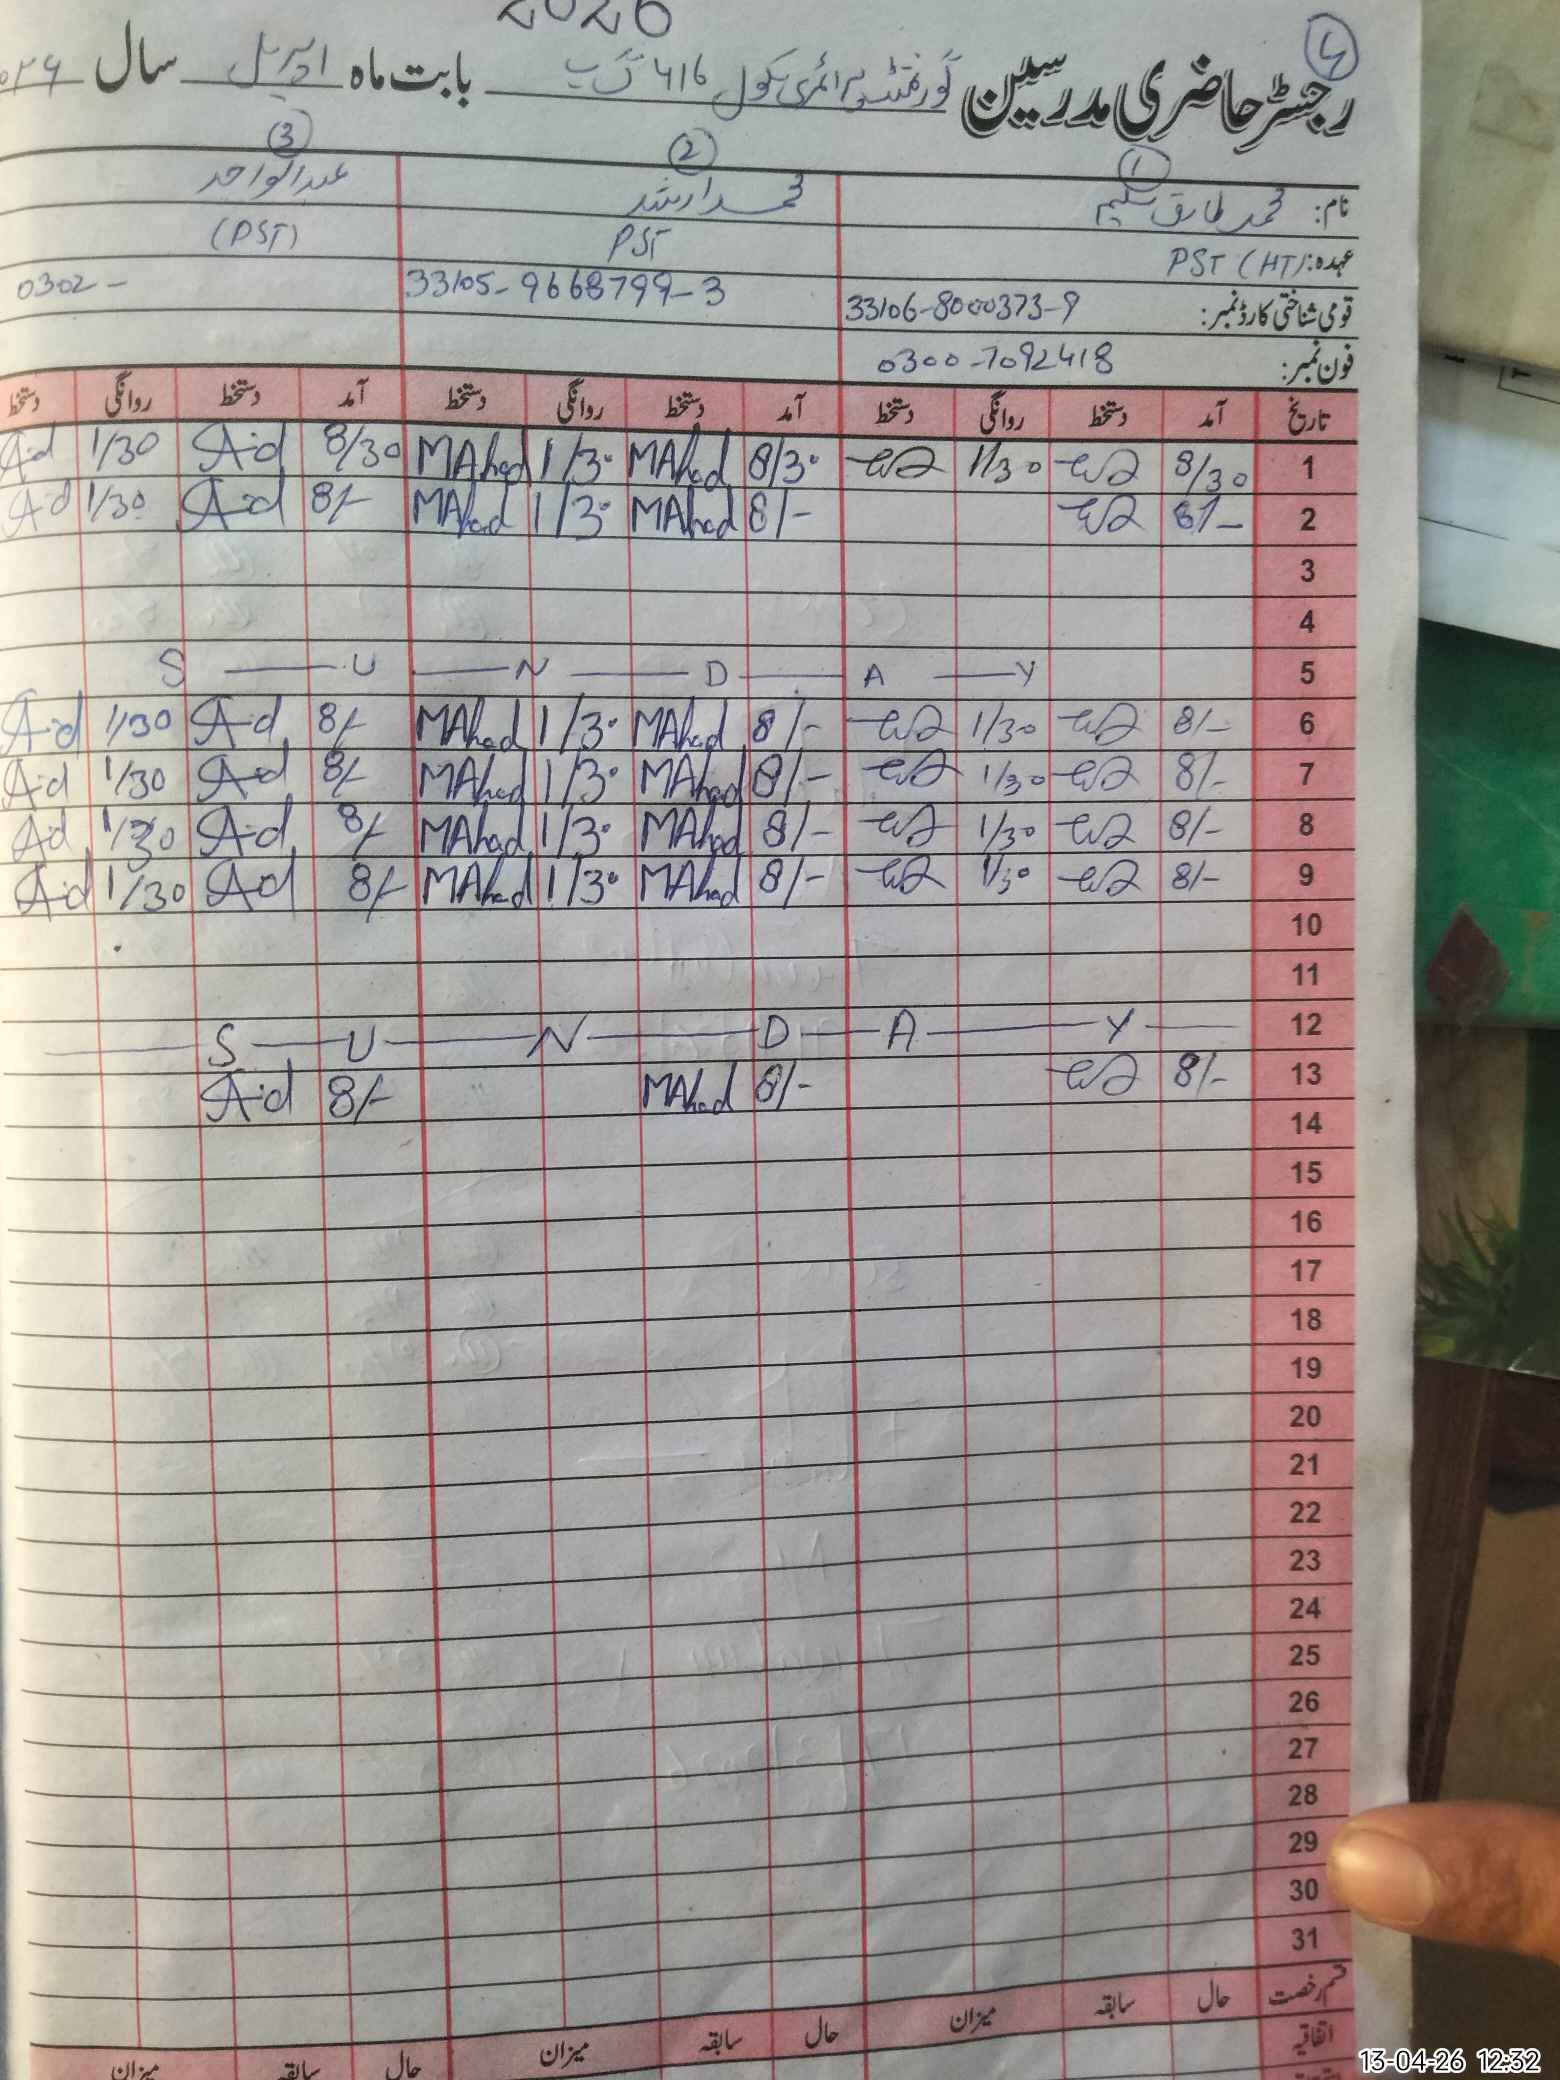 2026
4
رجسٹر حاضری مدرسین گورنمنٹ پرائمری سکول 416 گ ب بابت ماہ اپریل سال
1 2 3
نام: محمد طارق سلیم محمد ارشد عبدالواحد
عہدہ: PST (HT) PST (PST)
قومی شناختی کارڈ نمبر: 33106-8000373-9 33105-9668799-3 0302-
فون نمبر: 0300-7092418
تاریخ آمد دستخط روانگی دستخط آمد دستخط روانگی دستخط آمد دستخط روانگی دستخط
1 8/30 1/30 8/30 MAhad 1/30 MAhad 8/30 Aid 1/30 Aid
2 8/- 8/- MAhad 1/30 MAhad 8/- Aid 1/30 Aid
3
4
5 S U N D A Y
6 8/- 1/30 8/- MAhad 1/30 MAhad 8/- Aid 1/30 Aid
7 8/- 1/30 8/- MAhad 1/30 MAhad 8/- Aid 1/30 Aid
8 8/- 1/30 8/- MAhad 1/30 MAhad 8/- Aid 1/30 Aid
9 8/- 1/30 8/- MAhad 1/30 MAhad 8/- Aid 1/30 Aid
10
11
12 S U N D A Y
13 8/- 8/- MAhad 8/- Aid
14
15
16
17
18
19
20
21
22
23
24
25
26
27
28
29
30
31
قسم رخصت حال سابقہ میزان حال سابقہ میزان حال سابقہ میزان
اتفاقیہ
13-04-26 12:32